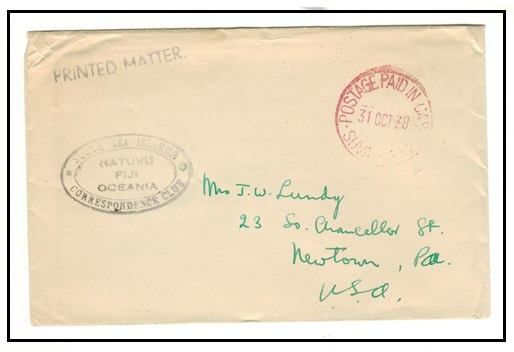 PRINTED MATTER.
POSTAGE PAID IN
31 OCT 38
SUVA
SEA ISLANDS
NATUVU
FIJI
OCEANIA
CORRESPONDENCE CLUB
Mrs J. W. Lundy
23 So. Chancellor St.
Newtown, Pa.
U.S.A.